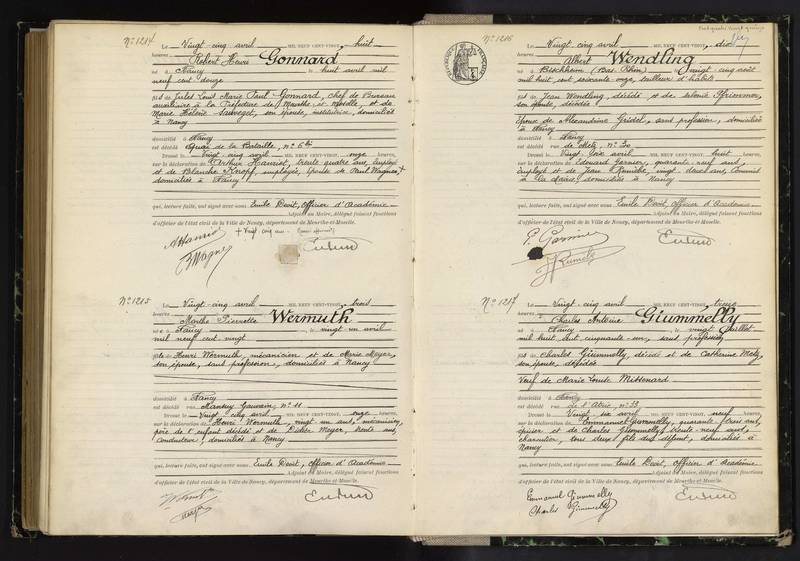 N° 1214
Le Vingt-cinq avril MIL NEUF CENT VINGT, huit
heures,
Robert Henri Gonnard
né à Nancy, le huit avril mil
neuf cent douze
fils de Jules Louis Marie Paul Gonnard, chef de Bureau
auxiliaire à la Préfecture de Meurthe et Moselle, et de
Marie Hélène Sauveget, son épouse, institutrice, domiciliés
à Nancy
domicilié à Nancy
est décédé Quai de la Bataille, n° 6
Dressé le Vingt-cinq avril, onze heures,
sur la déclaration de Arthur Hanriot, trente quatre ans, employé
et de Blanche Knopf, employée, épouse de Paul Wagner +
domiciliés à Nancy
qui, lecture faite, ont signé avec nous Emile Devit, Officier d'Académie
Adjoint au Maire, délégué faisant fonctions
d'officier de l'état civil de la Ville de Nancy, département de Meurthe-et-Moselle.
+ Vingt cinq ans
N° 1215
Le Vingt-cinq avril MIL NEUF CENT VINGT, trois
heures,
Marthe Pierrette Wermuth
née à Nancy, le vingt un avril
mil neuf cent vingt
fille de Henri Wermuth, mécanicien et de Marie Meyer,
son épouse, sans profession, domiciliés à Nancy
domicilié à Nancy
est décédé rue Mansuy Gauvain, n° 11
Dressé le Vingt cinq avril, onze heures,
sur la déclaration de Henri Wermuth, vingt un ans, mécanicien,
père de l'enfant décédé et de Meyer, trente ans,
Conducteur, domiciliés à Nancy
qui, lecture faite, ont signé avec nous Emile Devit, Officier d'Académie
Adjoint au Maire, délégué faisant fonctions
d'officier de l'état civil de la Ville de Nancy, département de Meurthe-et-Moselle.
N° 1216
Le Vingt-cinq avril MIL NEUF CENT VINGT, dix
heures,
Albert Wendling
né à Bischheim (Bas Rhin), le vingt-cinq août
mil huit cent soixante onze, tailleur d'habits
fils de Jean Wendling, décédé et de Salomé
son épouse, décédée
Époux de Alexandrine Gridel, sans profession, domiciliée
à Nancy
domicilié à Nancy
est décédé rue de Metz, n° 20
Dressé le Vingt-six avril, huit heures,
sur la déclaration de Edouard Garnier, quarante neuf ans,
employé et de Jean vingt deux ans, Commis
domiciliés à Nancy
qui, lecture faite, ont signé avec nous Emile Devit, Officier d'Académie
Adjoint au Maire, délégué faisant fonctions
d'officier de l'état civil de la Ville de Nancy, département de Meurthe-et-Moselle.
N° 1217
Le Vingt-cinq avril MIL NEUF CENT VINGT, treize
heures,
Charles Antoine Giummelly
né à Nancy, le vingt juillet
mil huit cent cinquante un, sans profession
fils de Charles Giummelly, décédé et de Catherine Metz,
son épouse, décédée
Veuf de Marie Louise Mittenard
domicilié à Nancy
est décédé n° 33
Dressé le Vingt six avril, neuf heures,
sur la déclaration de Emmanuel Giummelly, quarante trois ans,
épicier et de Charles Giummelly, trente neuf ans,
charcutier, tous deux fils du défunt, domiciliés à
Nancy
qui, lecture faite, ont signé avec nous Emile Devit, Officier d'Académie
Adjoint au Maire, délégué faisant fonctions
d'officier de l'état civil de la Ville de Nancy, département de Meurthe-et-Moselle.
Emmanuel Giummelly
Charles Giummelly